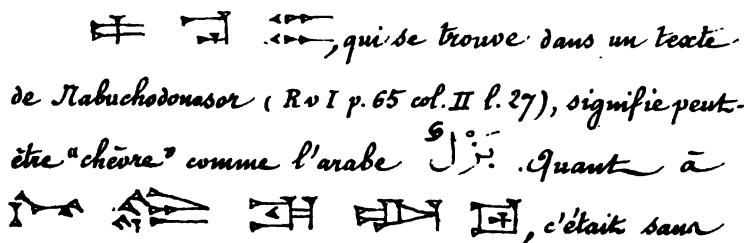 , qui se trouve dans un texte
de Nabuchodonosor ( R v I p. 65 col. II l. 27), signifie peut-
être "chèvre" comme l'arabe بَزْلٌ . Quant à
, c'était sans